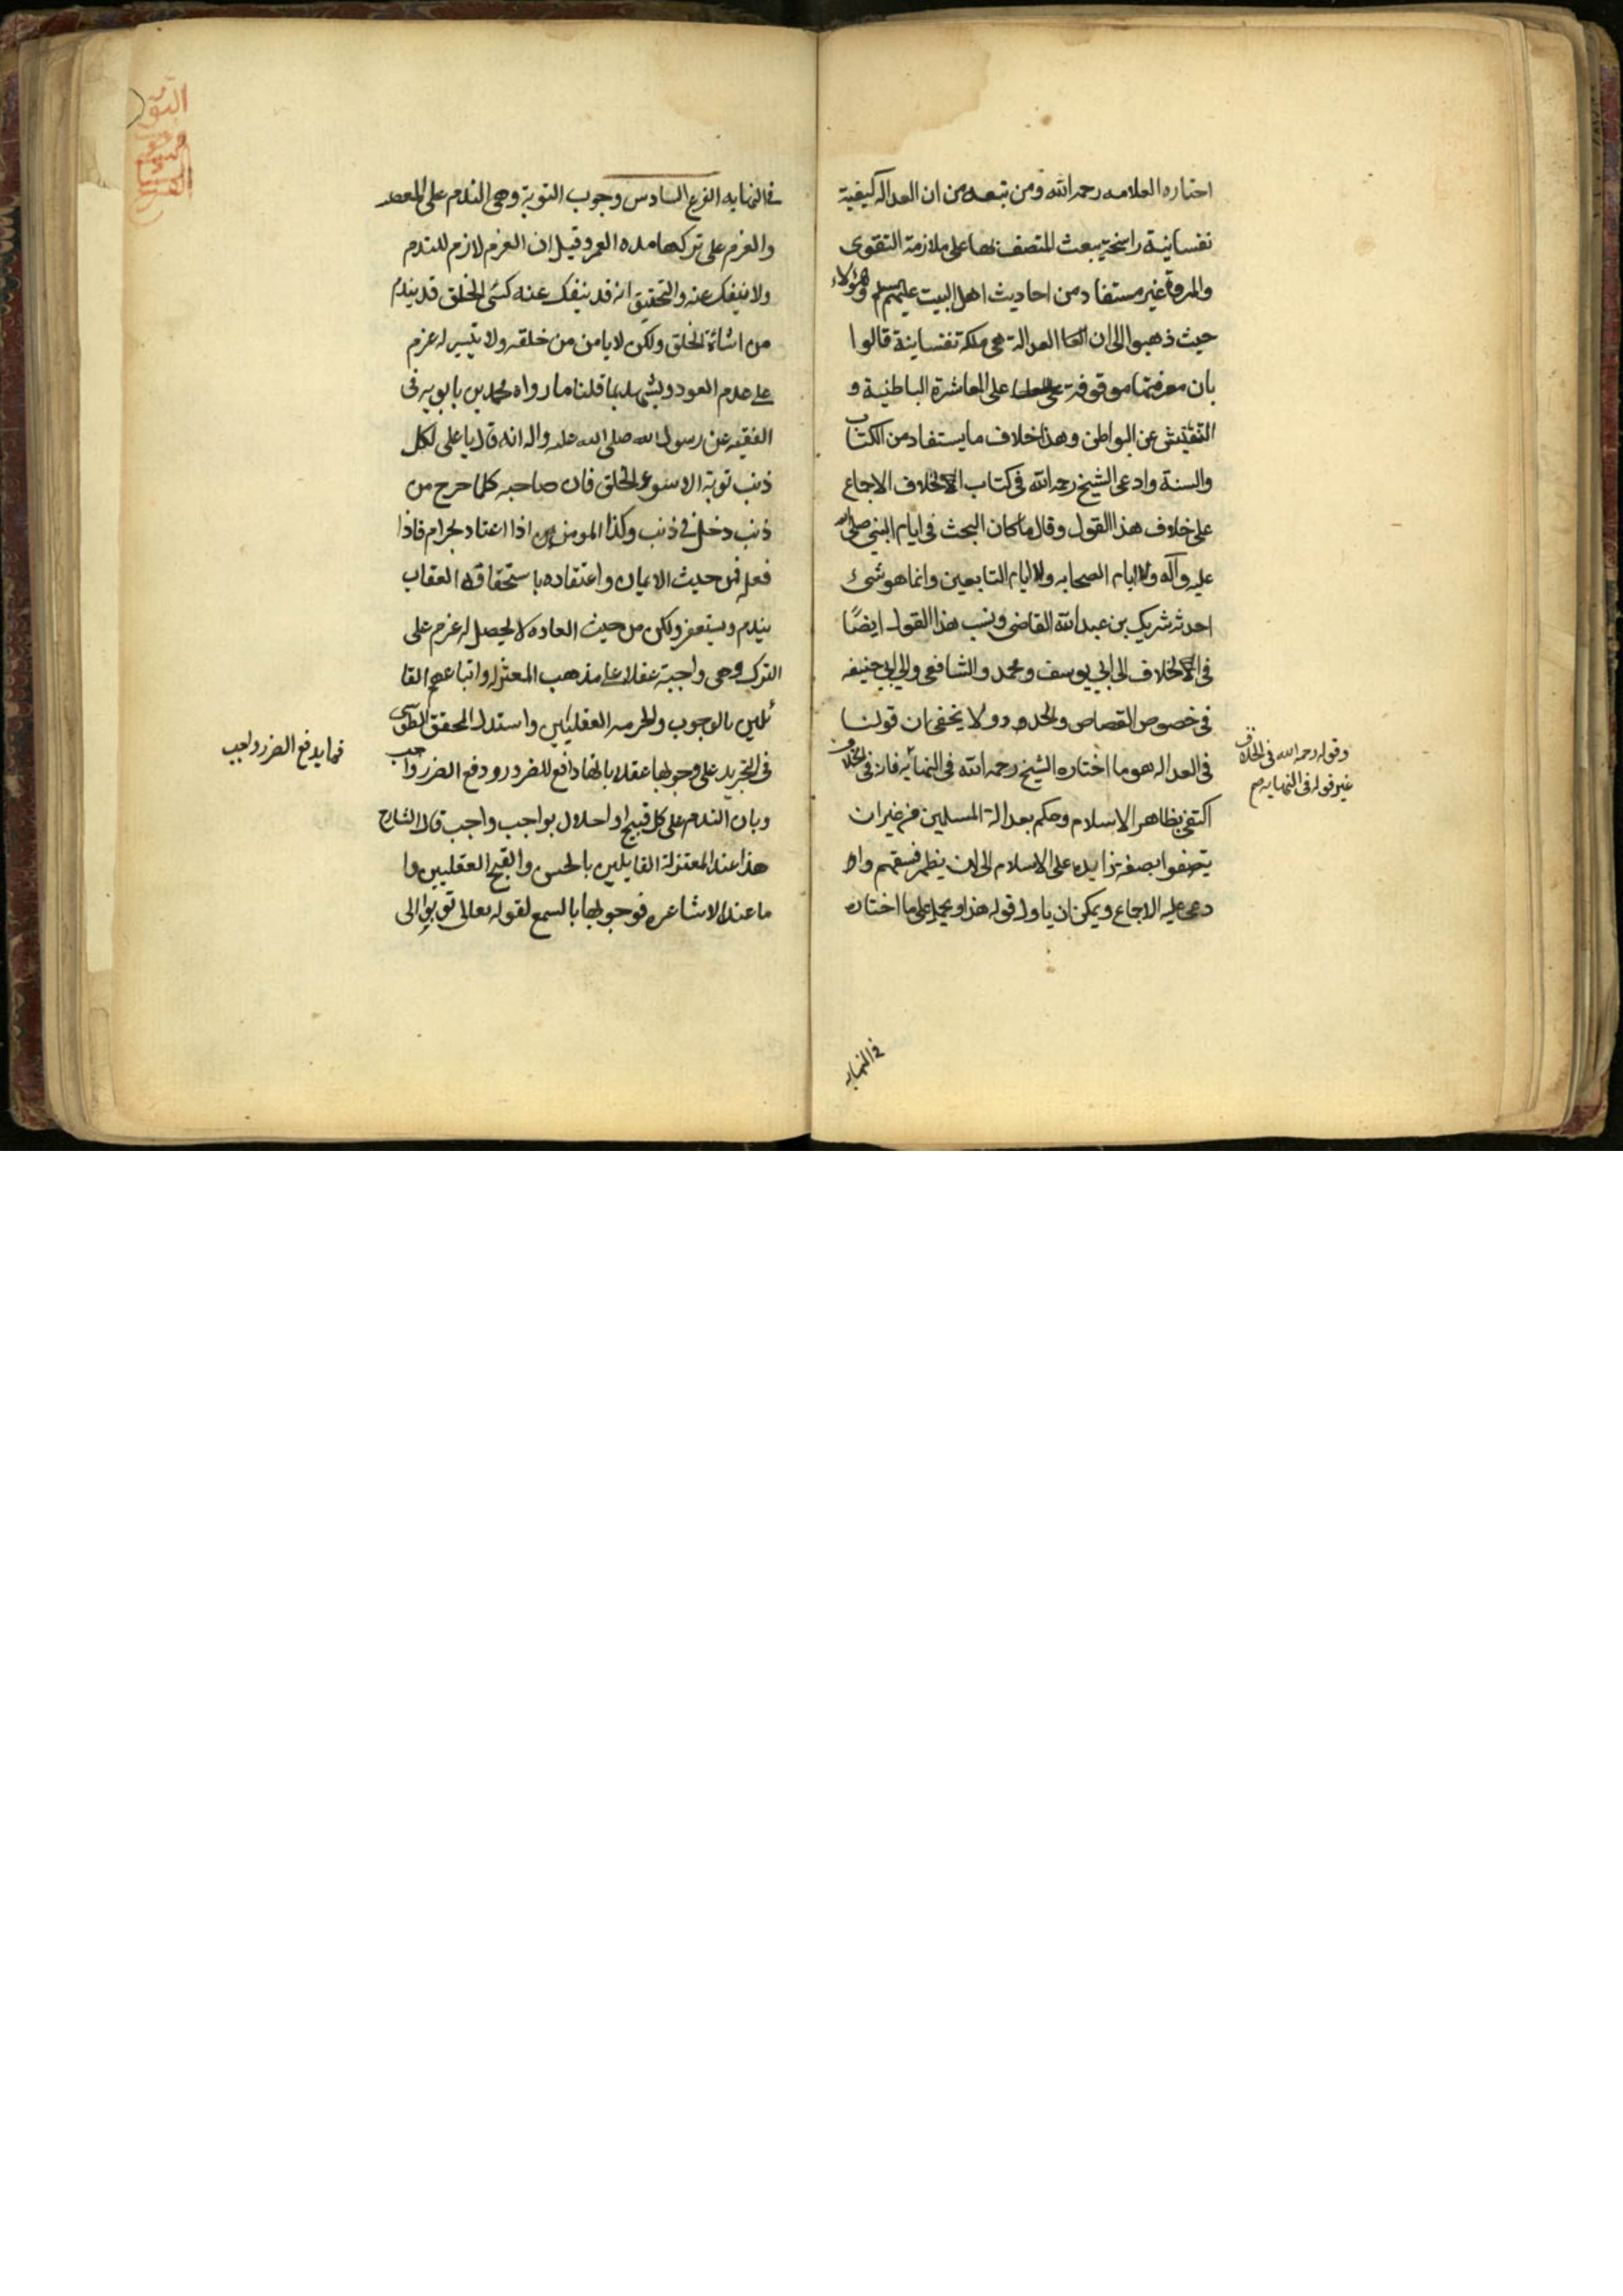 اختاره العلامه رحمه الله ومن تبعه من ان العداله كيفية
نفسانية راسخة يبعث المتصف بها على ملازمة التقوى
والمروة غير مستفاد من احاديث اهل البيت عليهم السلم وهؤلاء
حيث ذهبوا الى ان العدالة هى ملكة نفسانية قالوا
بان معرفتها موقوفة على المعاشرة الباطنية و
التفتيش عن البواطن وهذا خلاف ما يستفاد من الكتاب
والسنة وادعى الشيخ رحمه الله فى كتاب الخلاف الاجماع
على خلاف هذا القول وقال ما كان البحث فى ايام النبى صلى الله
عليه وآله ولا ايام الصحابه ولا ايام التابعين وانما هو شىء
احدثه شريك بن عبد الله القاضى ونسب هذا القول ايضًا
فى الخلاف الى ابى يوسف ومحمد والشافعى والى ابى حنيفه
فى خصوص القصاص والحدود ولا يخفى ان قولنا
فى العداله هو ما اختاره الشيخ رحمه الله فى النهاية فانه فى الخلاف
اكتفى بظاهر الاسلام وحكم بعدالة المسلمين من غير ان
يتصفوا بصفة زايده على الاسلام الى ان يظهر فسقهم واد
دعى عليه الاجماع ويمكن ان ياول قوله هذا ويحمل على ما اختاره
وقوله رحمه الله فى الخلاف
غير قوله فى النهايه صح
فى النهايه
فى النهايه الفرع السادس وجوب التوبة وهى الندم على المعصيه
والعزم على تركها مده العمر وقيل ان العزم لازم للندم
ولا ينفك عنه والتحقيق انه قد ينفك عنه كسىء الخلق قد يندم
من اشائة الخلق ولكن لا يامن من خلقه ولا يتيسر له عزم
على عدم العود ويشهد بما قلنا ما رواه محمد بن بابويه فى
الفقيه عن رسول الله صلى الله عليه واله انه قال يا على لكل
ذنب توبة الا سوء الخلق فان صاحبه كلما خرج من
ذنب دخل فى ذنب وكذا المومن اذا اعتاد بحرام فاذا
فعله فمن حيث الايمان واعتقاده باستحقاقه العقاب
يندم ويستغفر ولكن من حيث العاده لا يحصل له عزم على
الترك وهى واجبة عقلا على مذهب المعتزله واتباعهم القا
ئلين بالوجوب والحرمه العقليين واستدل المحقق الطوسى
فى التجريد على وجوبها عقلا بانها دافع للضرر ودفع الضرر واجب
وبان الندم على كل قبيح او اخلال بواجب واجب قال الشارح
هذا عند المعتزلة القايلين بالحسن والقبح العقليين وا
ما عند الاشاعره فوجوبها بالسمع لقوله تعالى توبوا الى
فما يدفع الضرر واجب